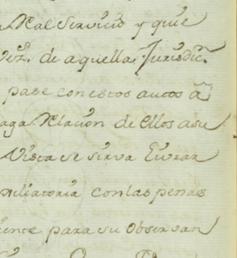 Real Servicio y que
vez.^d de aquella Jurisdic.^n
pase con estos autos a
aga Relacion de ellos a su
Vista se sirva Livrar
pulsatoria con las penas
ente para su observan